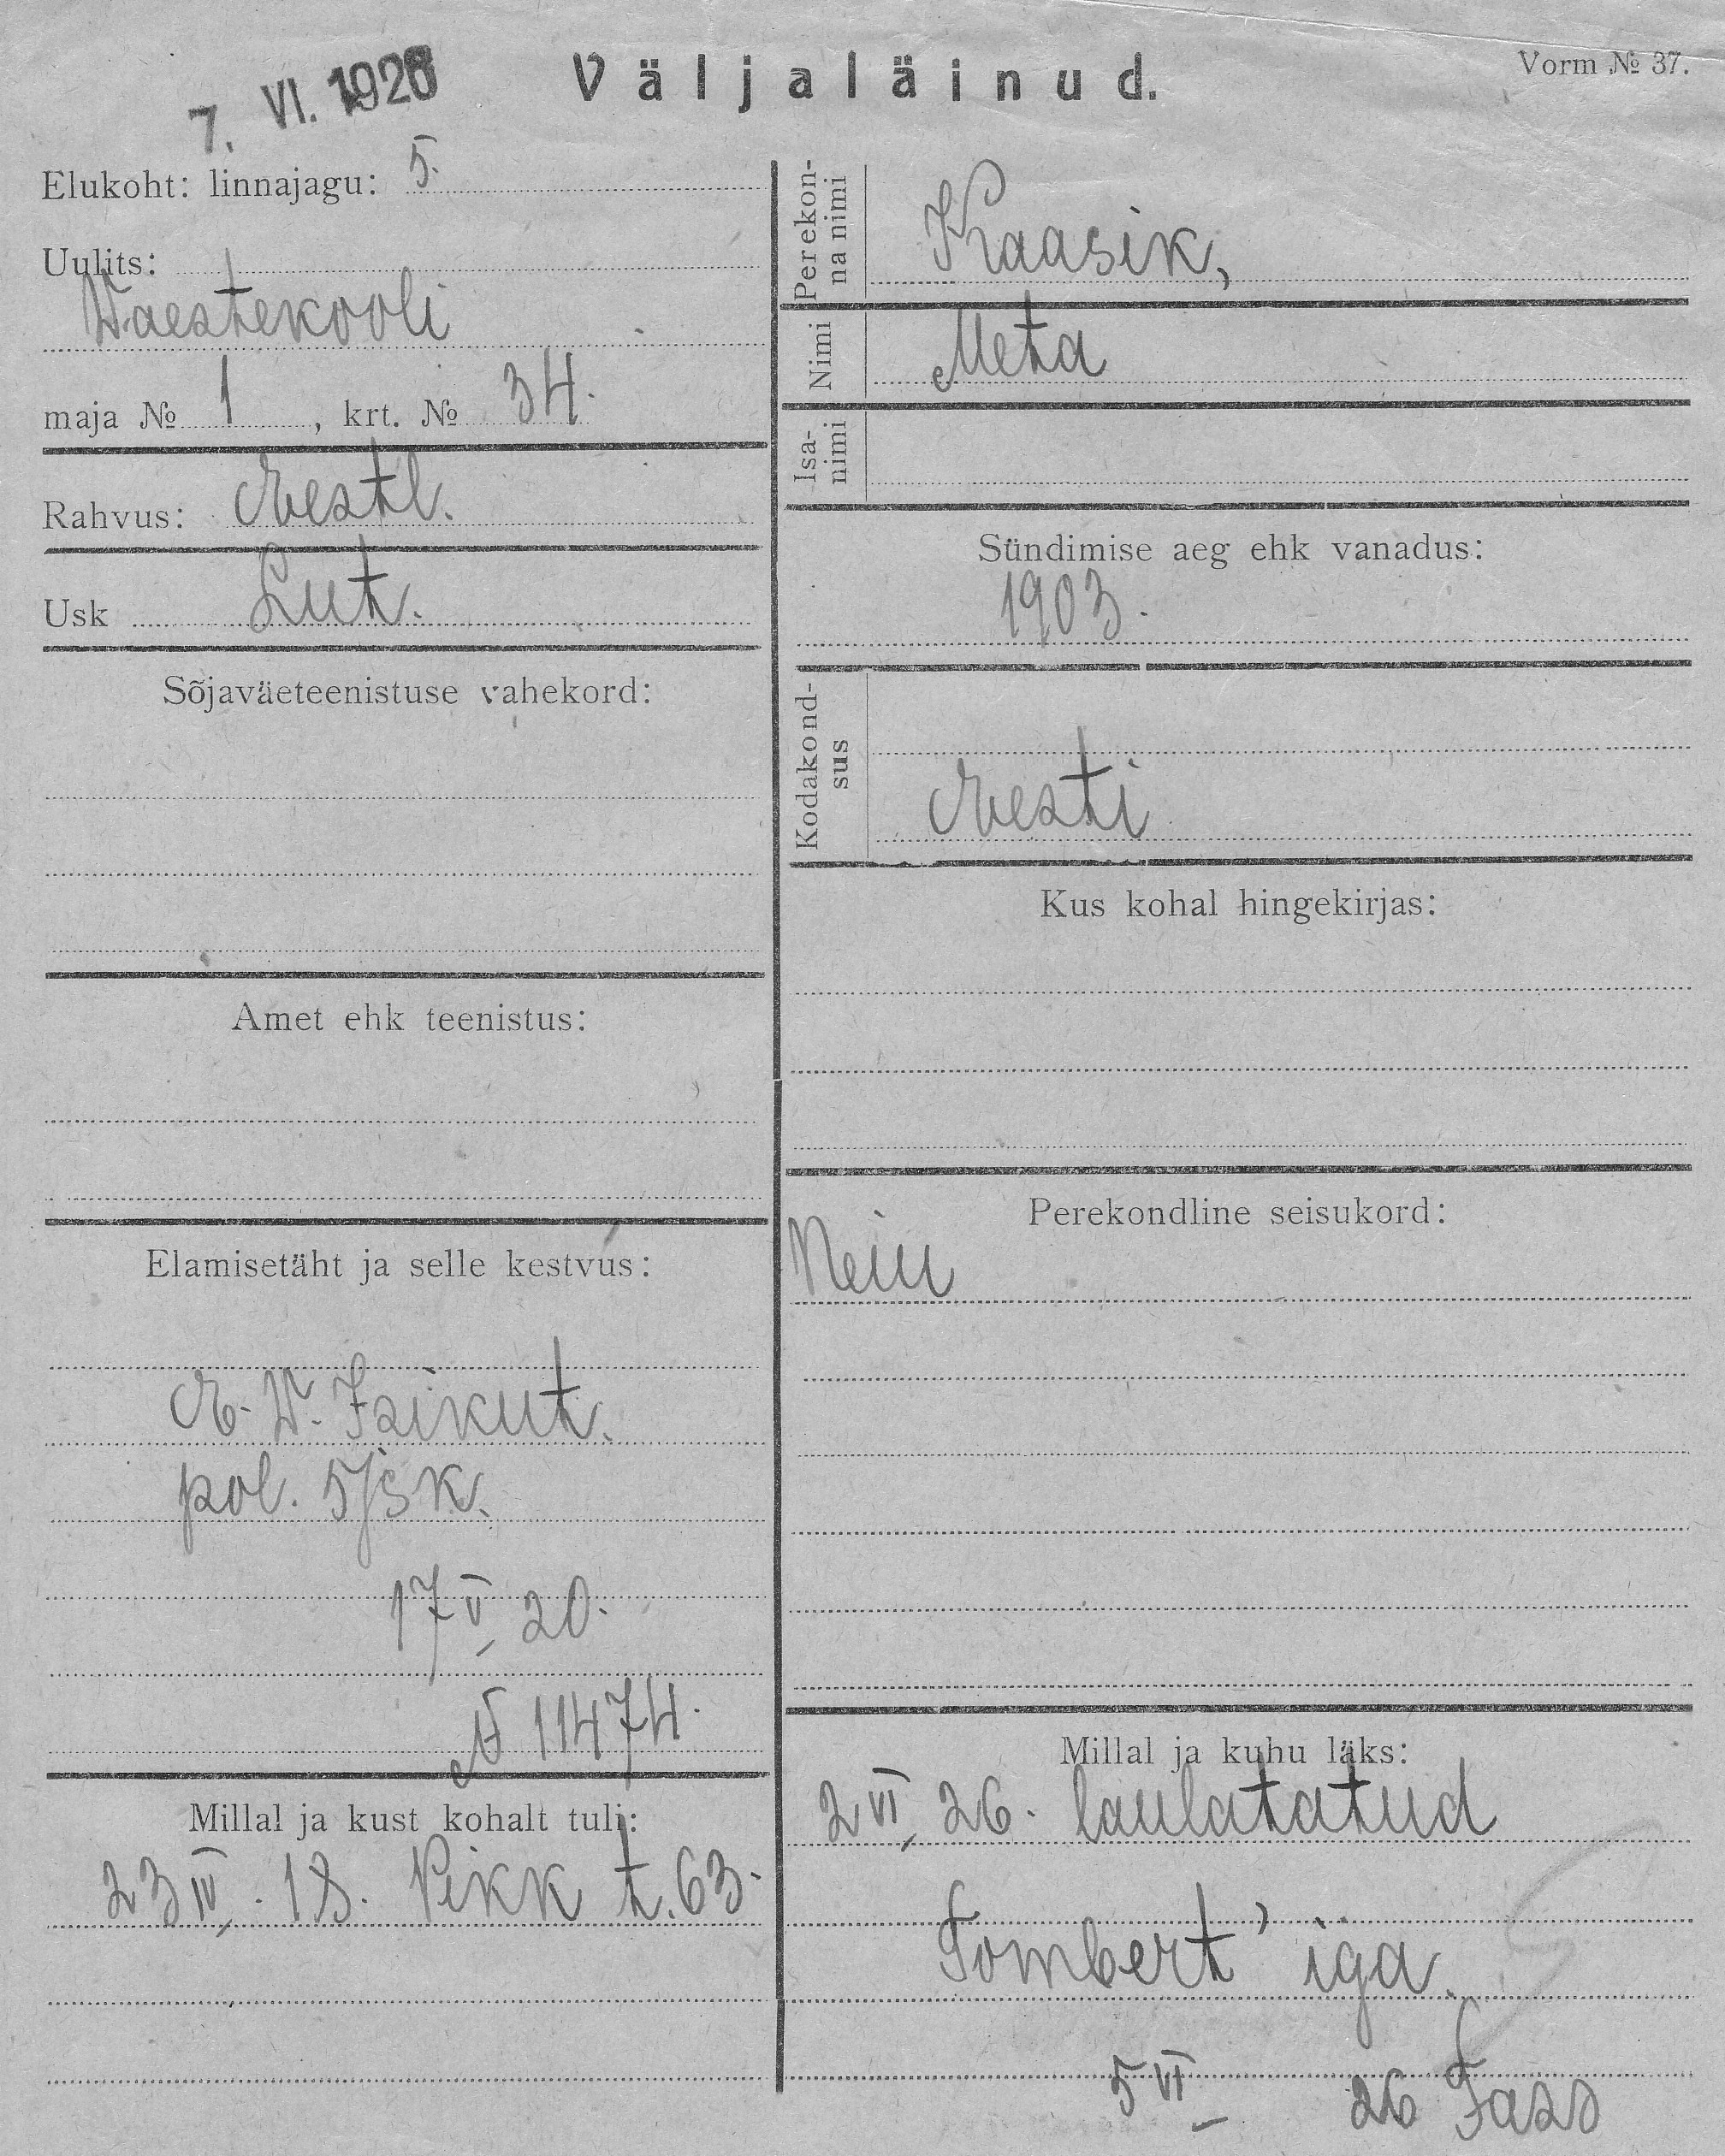 7. VI. 1926
Väljaläinud.
Vorm № 37.
Elukoht: linnajagu: 5.
Uulits:
Waestekooli
maja № 1, krt. № 34.
Rahvus: Eestl.
Usk Lut.
Sõjaväeteenistuse vahekord:
Amet ehk teenistus:
Elamisetäht ja selle kestvus:
E. W. Isikut.
pol. 5 jsk.
17 V 20.
№ 11474.
Millal ja kust kohalt tuli:
23 IV. 18. Pikk t. 63.
Perekonna nimi
Kaasik,
Nimi
Meta
Isanimi
Sündimise aeg ehk vanadus:
1903.
Kodakondsus
Eesti
Kus kohal hingekirjas:
Perekondline seisukord:
Neiu
Millal ja kuhu läks:
2 VI 26. laulatatud
Tombert' iga.
5 VI 26